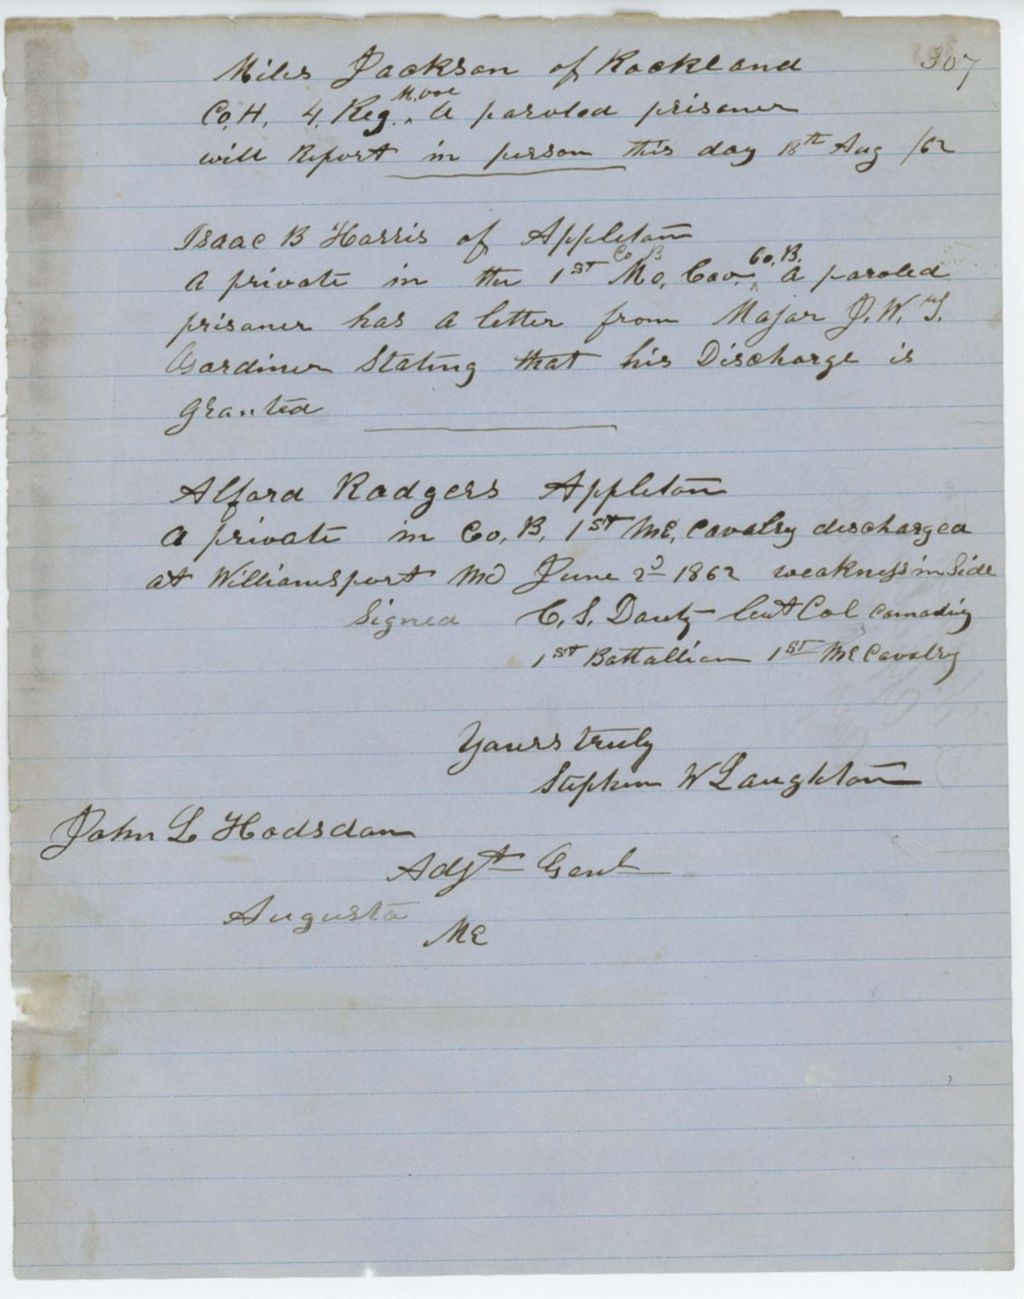 307
Miles Jackson of Rockland
Co, H, 4, Reg. ^ A paroled prisoner
will Report in person this day 18th Aug /62
Isaac B Harris of Appleton
Co B
A private in the 1st Me, Cav, ^ Co, B. A paroled
prisoner has a letter from Major J. W. T.
Gardiner Stating that his Discharge is
Granted
Alford Rodgers Appleton
A private in Co, B, 1st ME, Cavalry discharged
at Williamsport MD June 2d 1862 weakness in Side
Signed C, S, Douty Leut Col comading
1st Battallion 1st ME Cavalry
Yours truly
Stephen W Laughton
John L Hodsdon
Adjt Genl
Augusta
ME